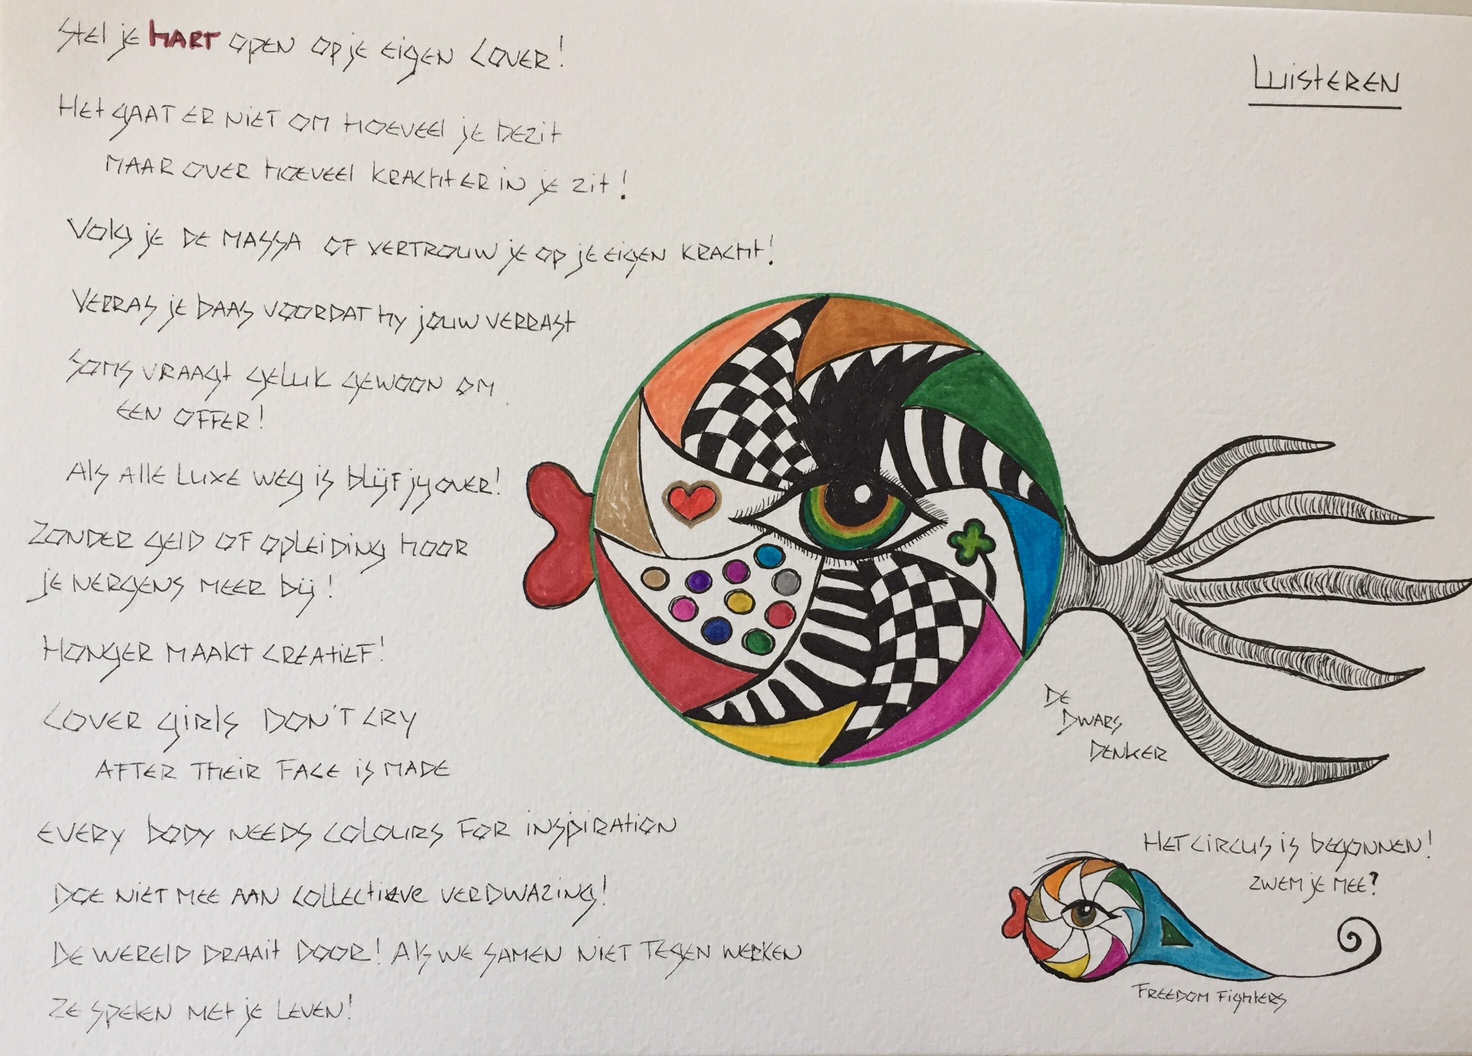 Stel je HART open op je eigen Cover!
Luisteren
Het gaat er niet om hoeveel je bezit
maar over hoeveel kracht er in je zit!
Volg je de massa of vertrouw je op je eigen kracht!
Verras je baas voordat hy jouw verrast
Soms vraagt geluk gewoon om
een offer!
Als alle luxe weg is blijf jy over!
Zonder geld of opleiding hoor
je nergens meer bij!
Honger maakt creatief!
Cover girls don't cry
after their face is made
Every body needs colours for inspiration
Doe niet mee aan collectieve verdwazing!
De wereld draait door! Als we samen niet tegen werken
Ze spelen met je leven!
De
Dwars
Denker
Het circus is begonnen!
Zwem je mee?
Freedom Fighters